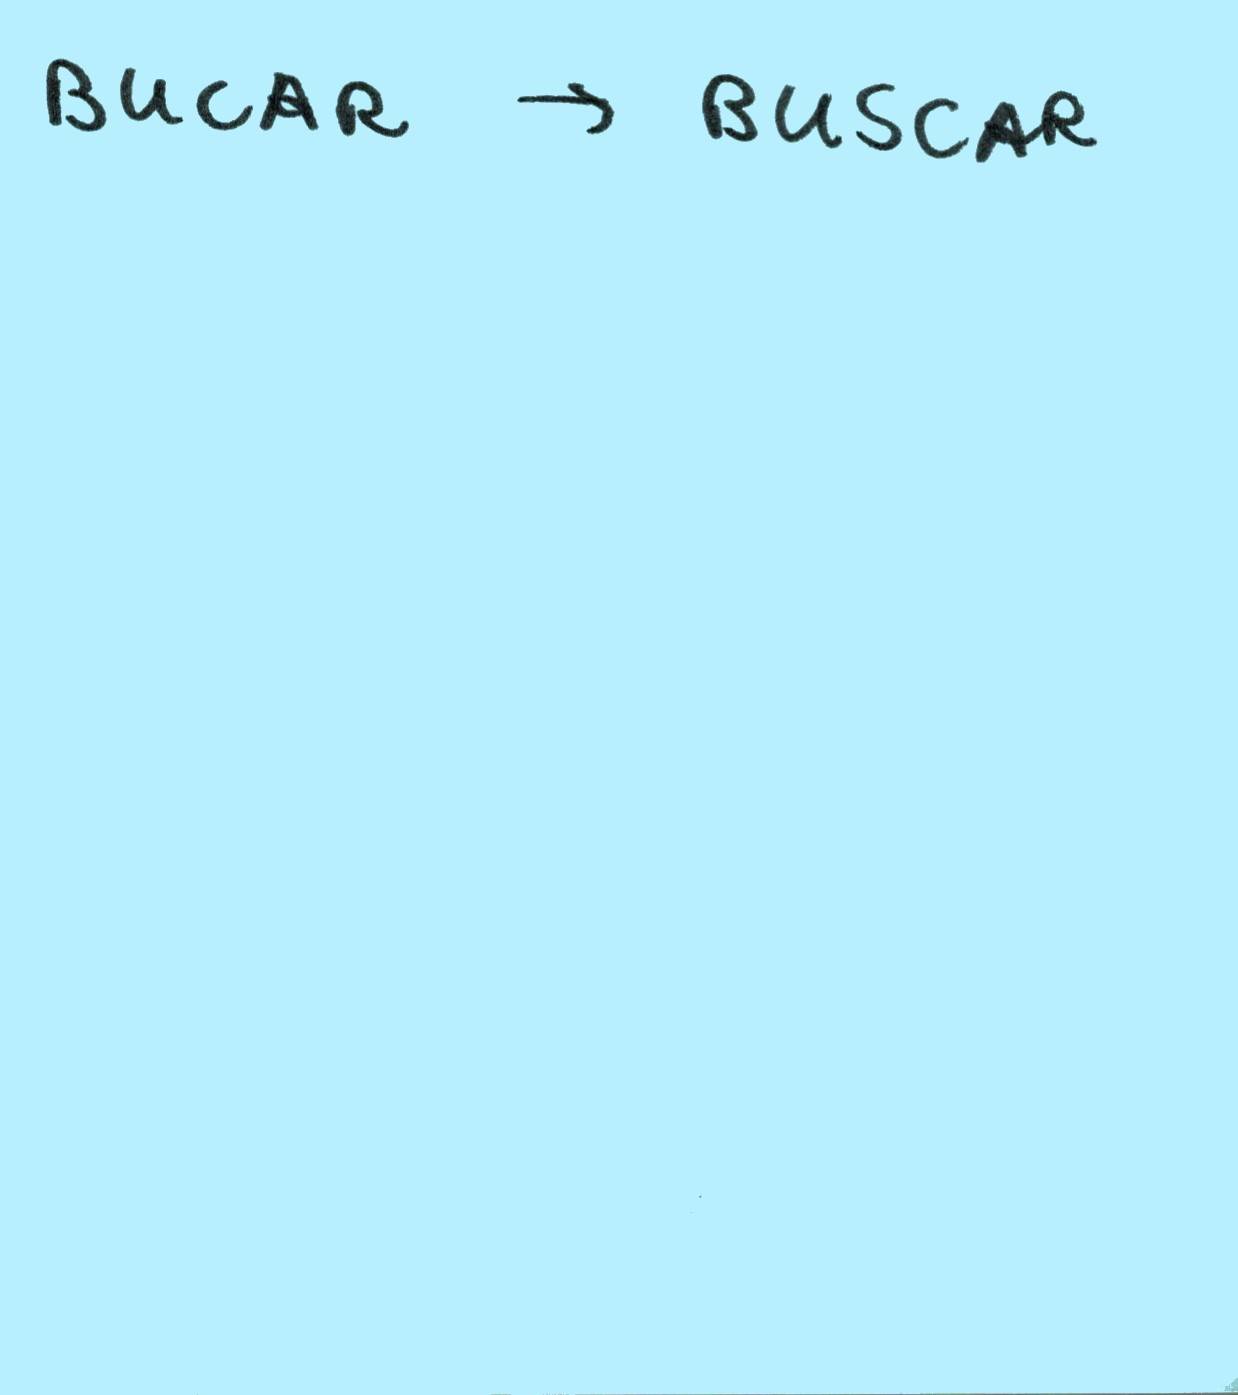 BUCAR → BUSCAR